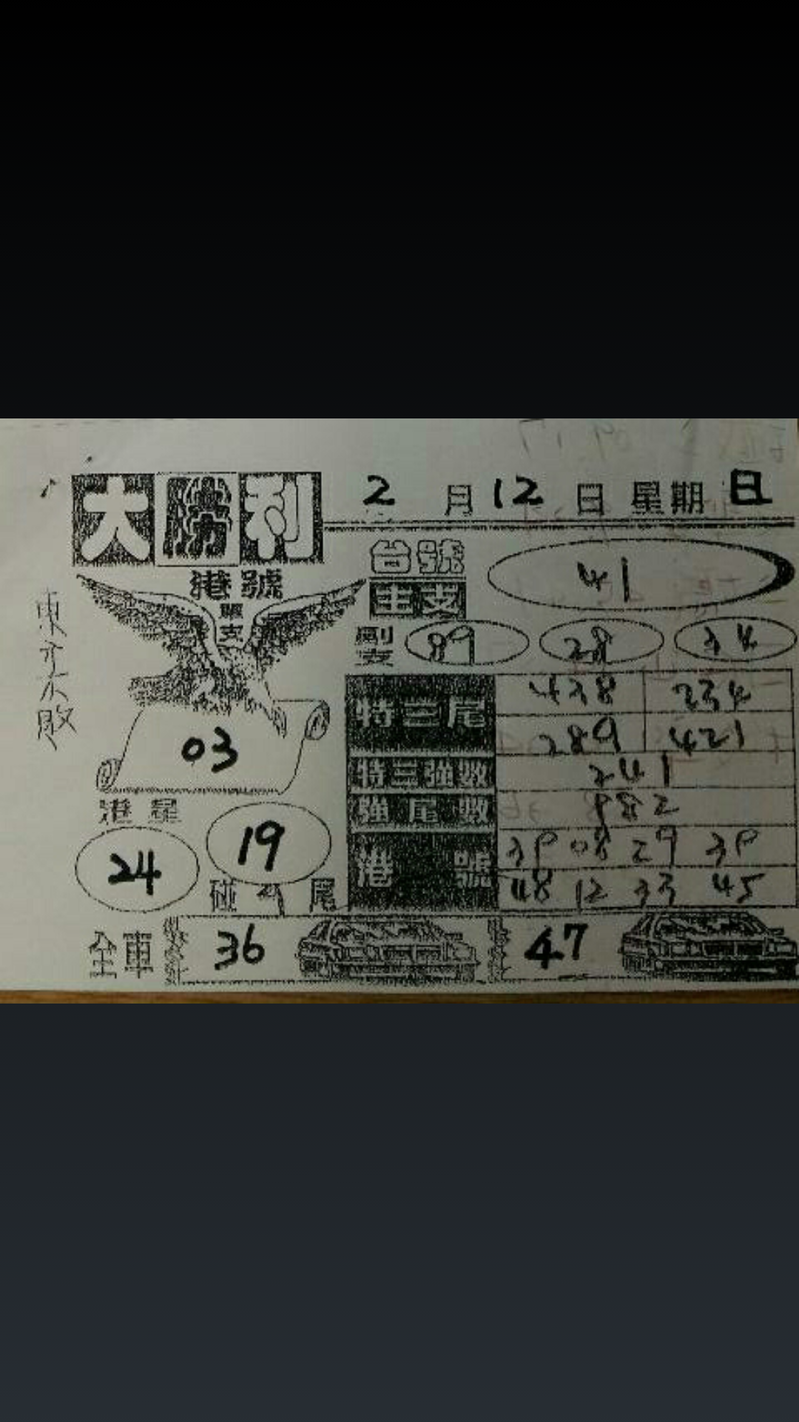 大勝利 2月12日 星期日
港號
單支
台號
主支 41
副支 89 28 34
03
特三尾 438 234
289 421
特三強數 241
強尾數 982
港號 08 29
48 12 33 45
港星
24 19
碰 尾
全車 36 47
東 不敗